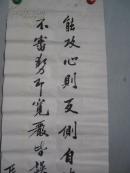 能攻心則反側自
不審勢即寬嚴皆誤